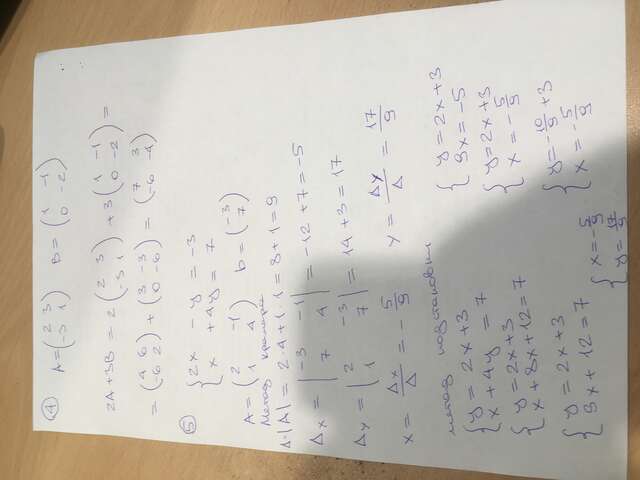 ④ A = (2 3; -3 1) B = (1 -1; 0 -2)
2A + 3B = 2 (2 3; -3 1) + 3 (1 -1; 0 -2) =
= (4 6; -6 2) + (3 -3; 0 -6) = (7 3; -6 -4)
⑤ { 2x - y = -3
x + 4y = 7
A = (2 -1; 1 4) b = (-3; 7)
Метод Крамера
Δ = |A| = 2·4 + 1·1 = 8 + 1 = 9
Δx = |-3 -1; 7 4| = -12 + 7 = -5
Δy = |2 -3; 1 7| = 14 + 3 = 17
x = Δx/Δ = -5/9 y = Δy/Δ = 17/9
метод подстановки
{ y = 2x + 3
x + 4y = 7
{ y = 2x + 3
x + 8x + 12 = 7
{ y = 2x + 3
9x + 12 = 7
{ y = 2x + 3
9x = -5
{ y = 2x + 3
x = -5/9
{ y = -10/9 + 3
x = -5/9
{ x = -5/9
y = 17/9